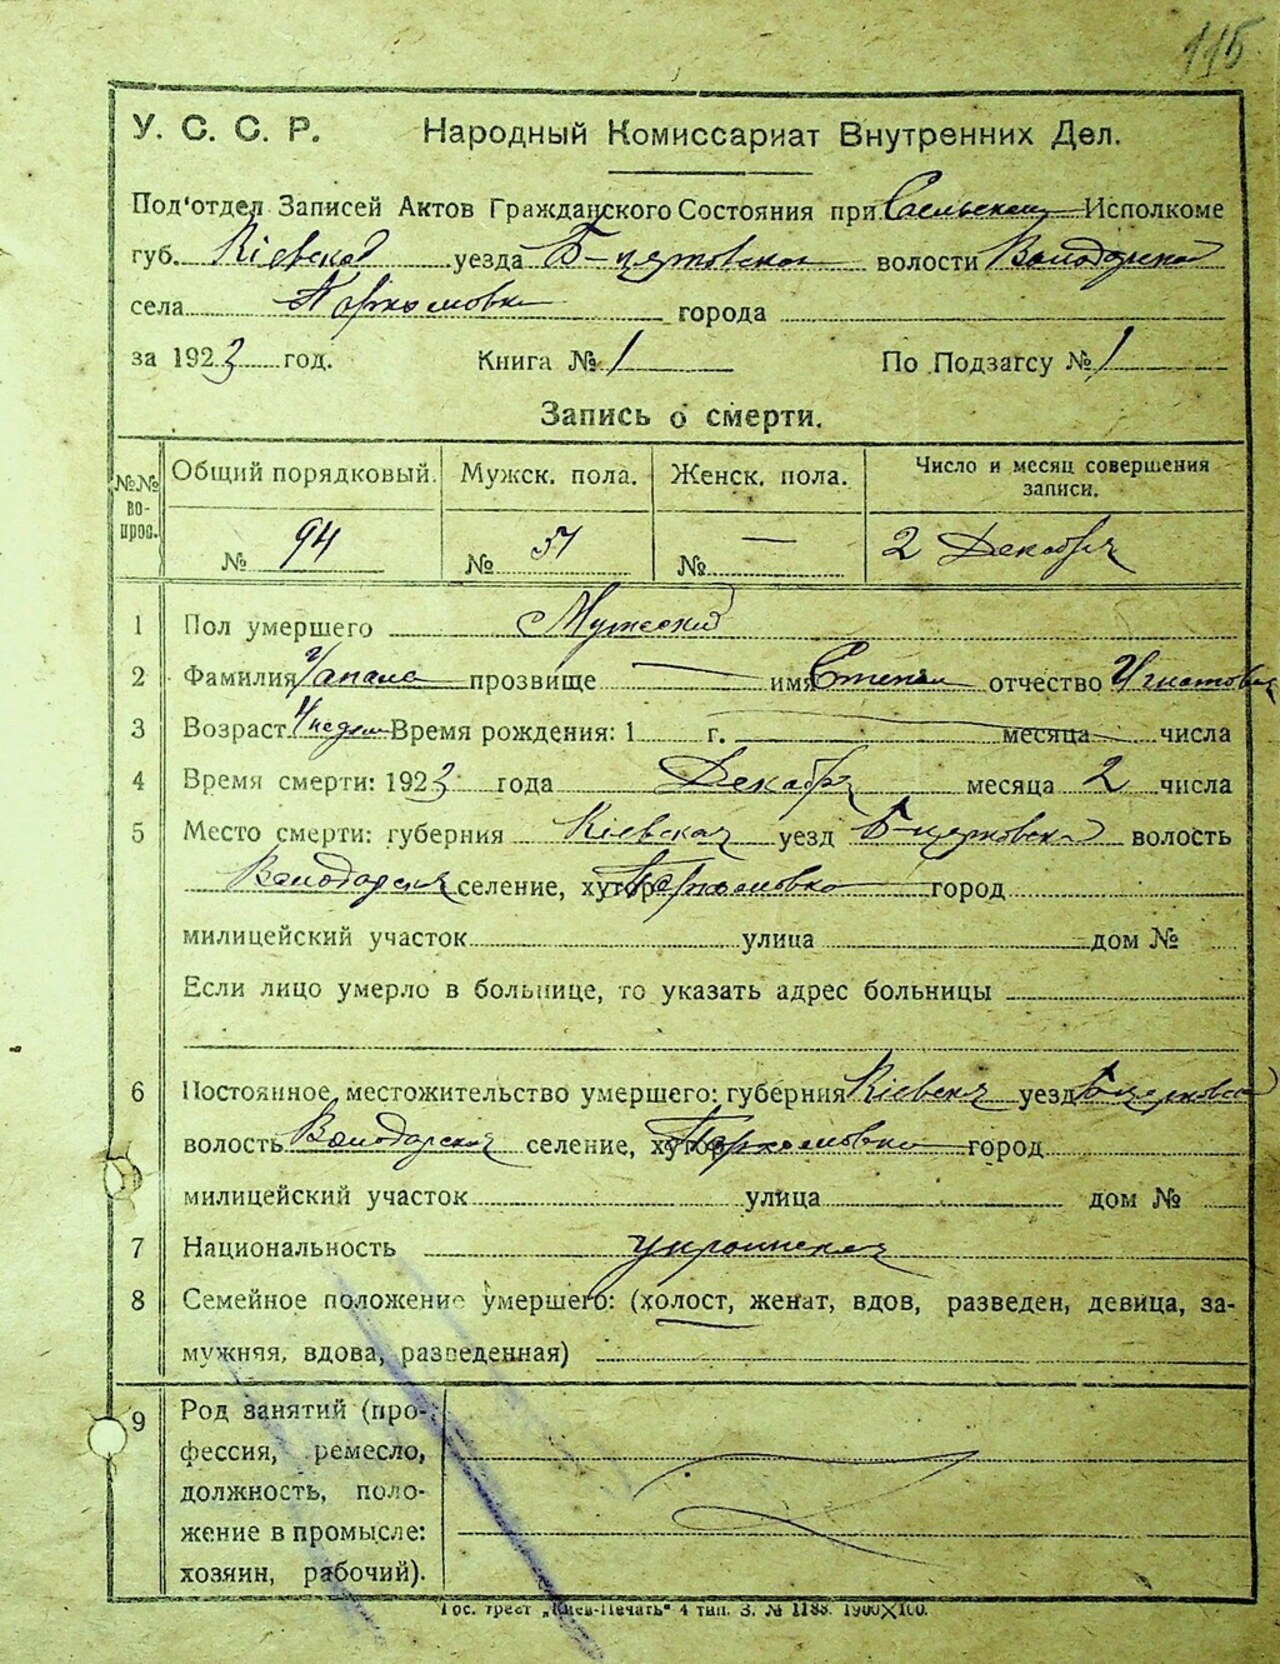 115
У. С. С. Р. Народный Комиссариат Внутренних Дел.
Под'отдел Записей Актов Гражданского Состояния при Сельском Исполкоме
губ. Кіевская уезда Б-церковская волости Володарской
села Пархомовка города
за 1923 год. Книга № 1 По Подзагсу № 1
Запись о смерти.
№№ вопрос. Общий порядковый. Мужск. пола. Женск. пола. Число и месяц совершения записи.
№ 94 № 51 № — 2 Декабря
1 Пол умершего Мужеский
2 Фамилия Чапала прозвище — имя Степан отчество Игнатович
3 Возраст 4 недели Время рождения: 1 г. месяца числа
4 Время смерти: 1923 года Декабря месяца 2 числа
5 Место смерти: губерния Кіевская уезд Б-церковская волость
Володарская селение, хутор Пархомовка город
милицейский участок улица дом №
Если лицо умерло в больнице, то указать адрес больницы
6 Постоянное местожительство умершего: губерния Кіевская уезд Б-церковская
волость Володарская селение, хутор Пархомовка город
милицейский участок улица дом №
7 Национальность украинская
8 Семейное положение умершего: (холост, женат, вдов, разведен, девица, за-
мужняя, вдова, разведенная)
9 Род занятий (про-
фессия, ремесло,
должность, поло-
жение в промысле:
хозяин, рабочий).
Гос. трест „Киев-Печать" 4 тип. З. № 1188. 1900X100.